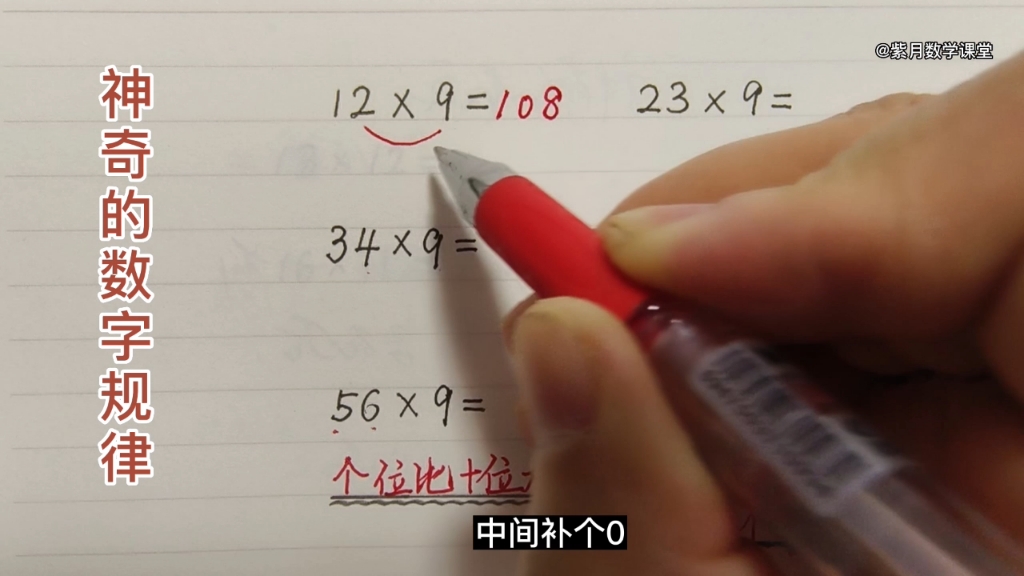 @紫月数学课堂
神奇的数字规律
12×9=108
23×9=
34×9=
56×9=
个位比十位
中间补个0